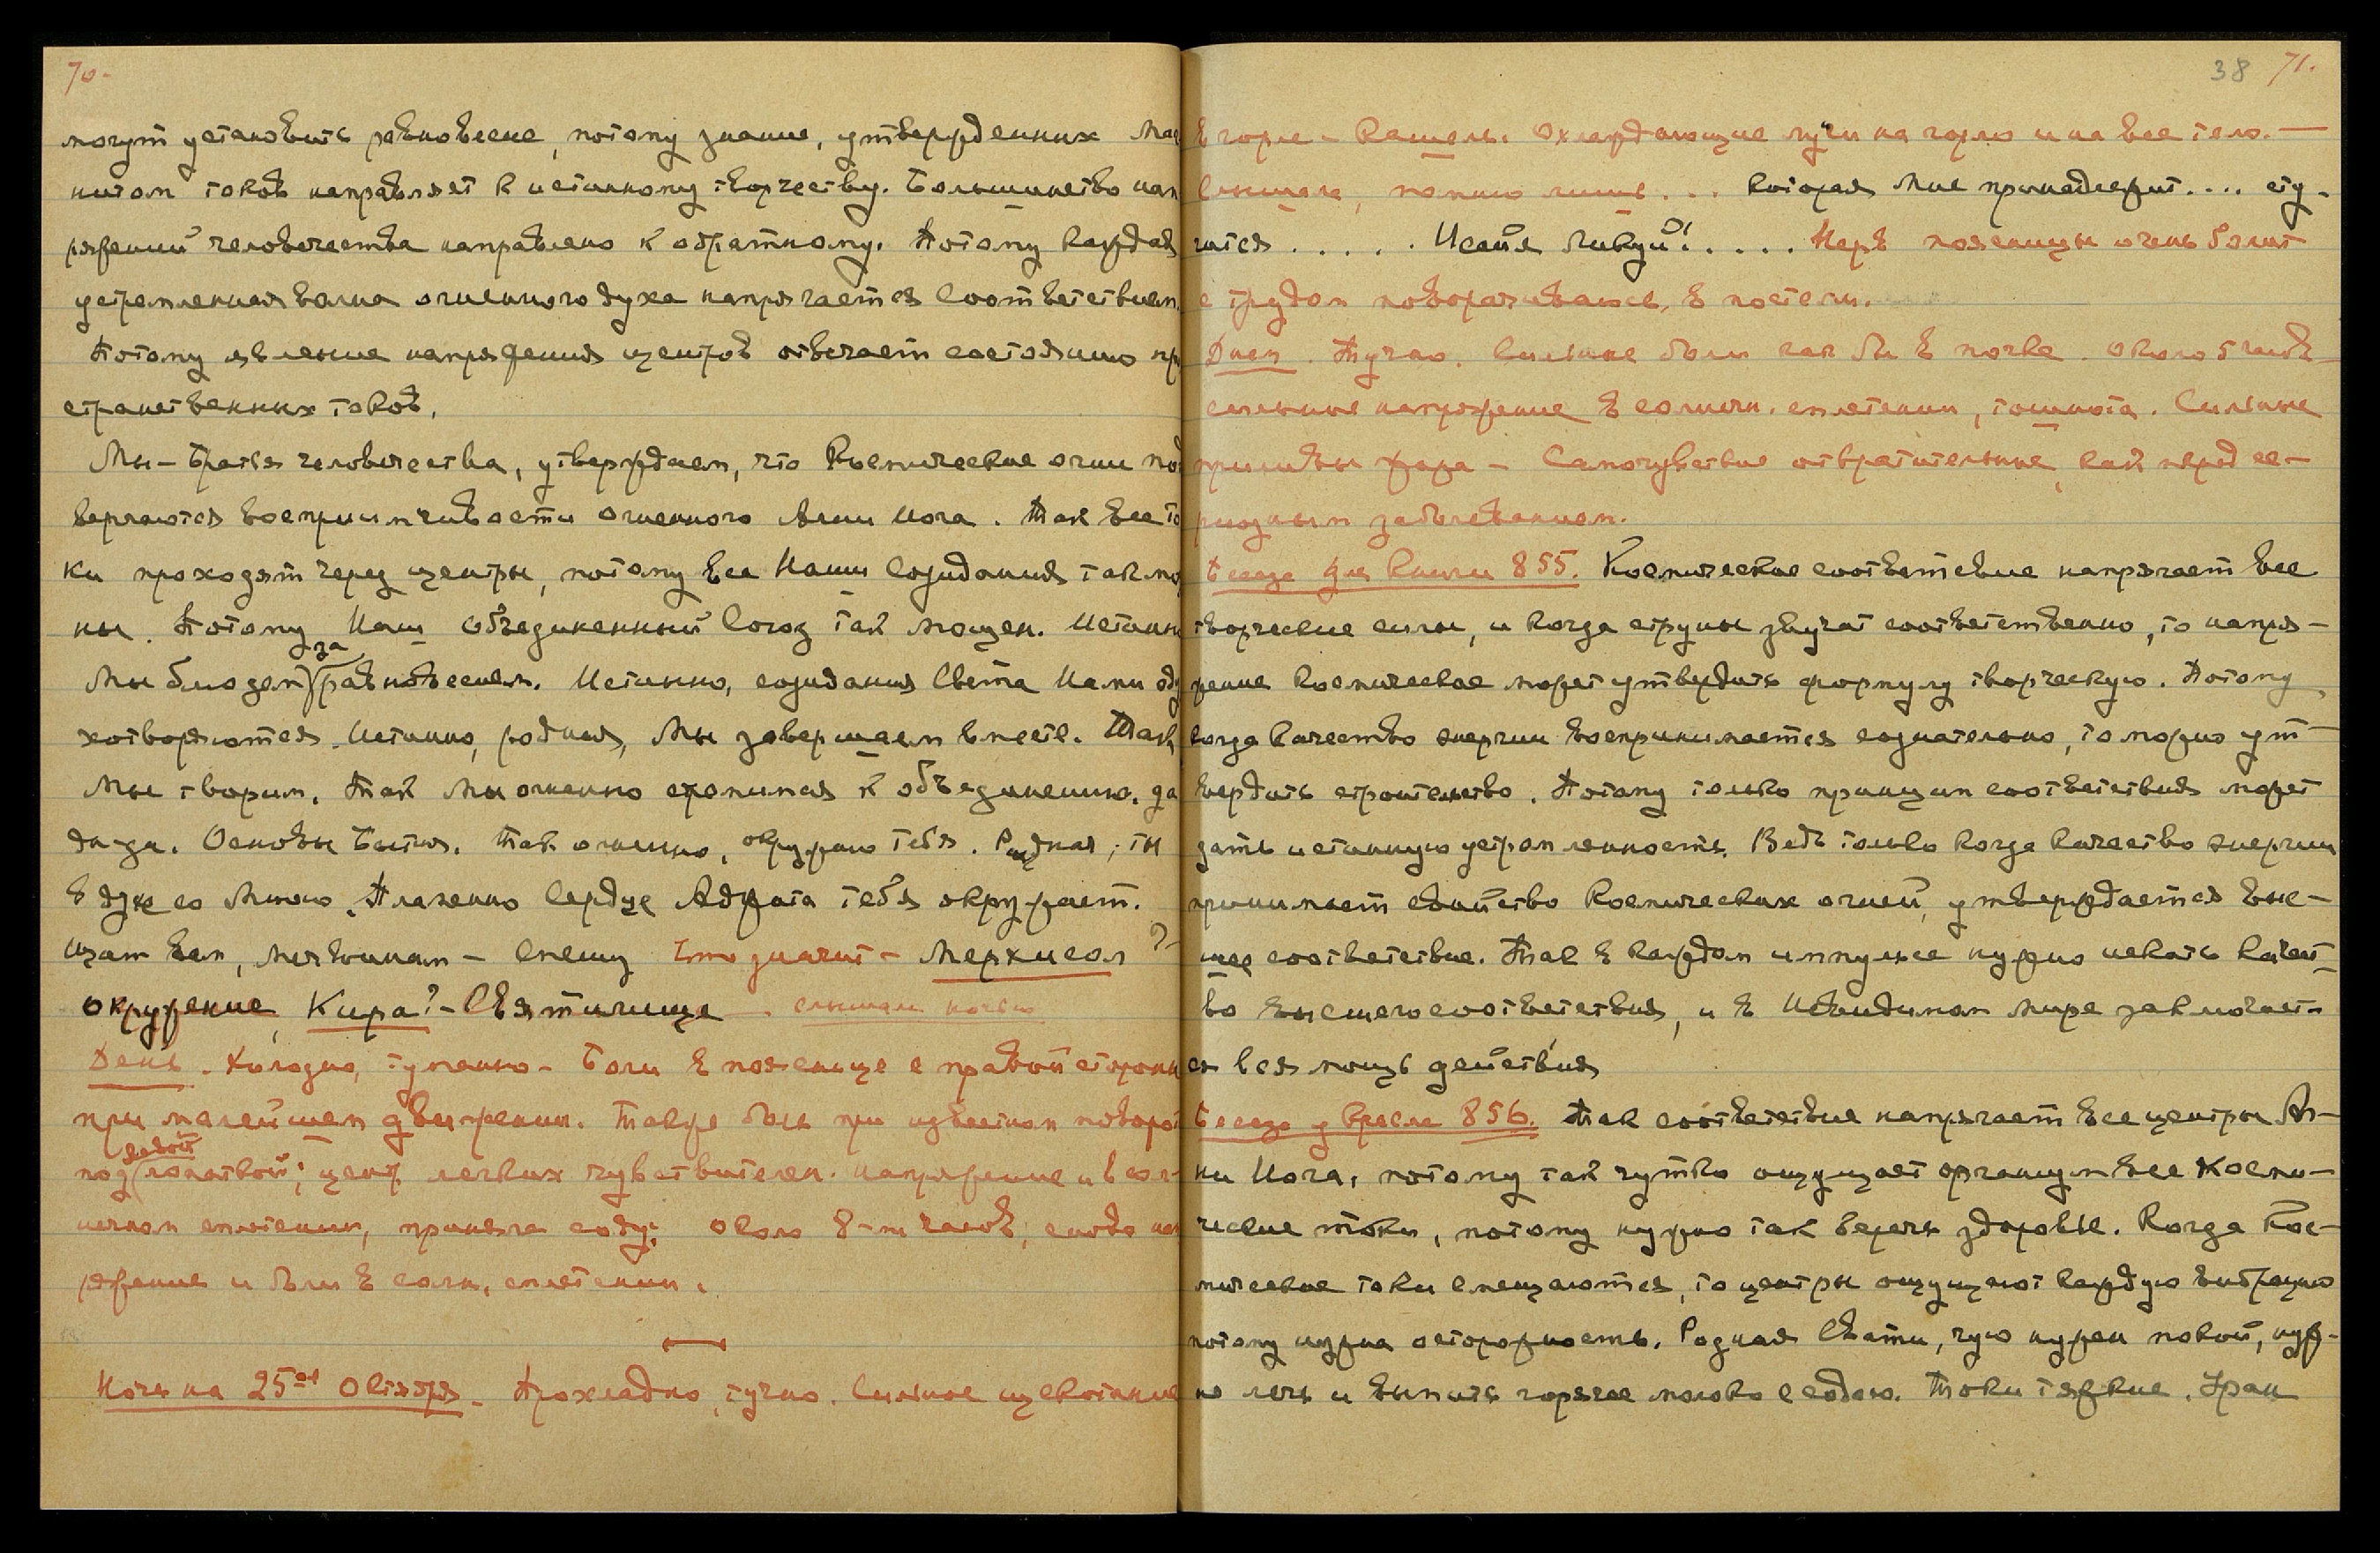 70.
могут установить равновесие, потому знание, утвержденных Маг
нитом токов направляет к истинному творчеству. Большинство нап
ряжений человечества направлено к обратному. Потому каждая
устремленная волна огненного духа напрягается соответствием.
Потому явление напряжения центров отвечает состоянию про
странственных токов.
Мы – Братья человечества, утверждаем, что Космические огни под
вергаются восприимчивости огненного Агни Йога. Так все то
ки проходят через центры, потому все Наши созидания так мощ
ны. Потому Наш объединенный союз так мощен. Истинно
Мы блюдем за равновесием. Истинно, созидания Света Нами оду
хотворяются. Истинно, родная, Мы завершаем вместе. Так
Мы творим. Так мы огненно стремимся к объединению. да
да-да. Основы Бытия. Так огненно, окружаю тебя. Родная, ты
в духе со Мною. Пламенно Сердце Адепта тебя окружает.
Щит вам, – спешу Что значит – Мерхисол ?-
окружение, Кира? – Святилище . слышала ночью
День. Холодно, туманно – Боли в пояснице с правой стороны
при малейшем движении. Также боль при известном поворот
под левой лопаткой; центр легких чувствителен. Напряжение и в сол-
нечном сплетении, приняла соду. Около 8-ми часов, снова нап
ряжение и боли в солн. сплетении.
Ночь на 25ое Октября – Прохладно, тучно. Сильное щекотание
38 71.
в горле – Кашель. Охлаждающие лучи на горло и на все тело. –
Слышала, помню лишь ... которая Мне принадлежит .... сту-
чится ..... Исайя ликуй! .... Нерв поясницы очень болит
с трудом поворачиваюсь, в постели.
Днем. Тучно. Сильные боли как бы в почке. около 5 час
сильные напряжение в солнечн. сплетении, тошнота. Сильные
приливы жара – Самочувствие отвратительное, как перед се-
риозным заболеванием.
Беседа для Книги 855. Космическое соответствие напрягает все
творческие силы, и когда струны звучат соответственно, то напря-
жение космическое может утвердить формулу творческую. Потому
когда качество энергии воспринимается сознательно, то можно ут-
вердить строительство. Потому только принцип соответствия может
дать истинную устремленность. Ведь только когда качество энергии
принимает свойство космических огней, утверждается выс-
шее соответствие. Так в каждом импульсе нужно искать качест-
во высшего соответствия, и в Невидимом мире заключает-
ся вся мощь действия
Беседа у Кресла 856. Так соответствие напрягает все центры Аг-
ни Йога, потому так чутко ощущает организм все Косми-
ческие токи, потому нужно так беречь здоровье. Когда Кос-
мические токи смещаются, то центры ощущают каждую вибрацию
потому нужна осторожность. Родная Свати, чую нужен покой, нуж-
но лечь и выпить горячее молоко с содою. Токи тяжкие. Храни